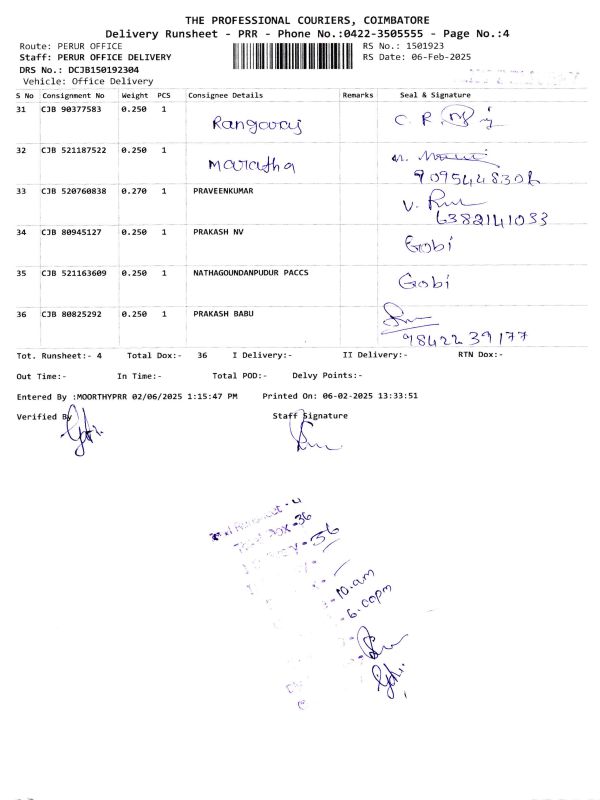 THE PROFESSIONAL COURIERS, COIMBATORE
Delivery Runsheet - PRR - Phone No.:0422-3505555 - Page No.:4
Route: PERUR OFFICE RS No.: 1501923
Staff: PERUR OFFICE DELIVERY RS Date: 06-Feb-2025
DRS No.: DCJB150192304
Vehicle: Office Delivery
S No Consignment No Weight PCS Consignee Details Remarks Seal & Signature
31 CJB 90377583 0.250 1 Rangaraj C. R.
32 CJB 521187522 0.250 1 Maratha
33 CJB 520760838 0.270 1 PRAVEENKUMAR V.
6382141033
34 CJB 80945127 0.250 1 PRAKASH NV Gobi
35 CJB 521163609 0.250 1 NATHAGOUNDANPUDUR PACCS Gobi
36 CJB 80825292 0.250 1 PRAKASH BABU
9842239177
Tot. Runsheet:- 4 Total Dox:- 36 I Delivery:- II Delivery:- RTN Dox:-
Out Time:- In Time:- Total POD:- Delvy Points:-
Entered By :MOORTHYPRR 02/06/2025 1:15:47 PM Printed On: 06-02-2025 13:33:51
Verified By Staff Signature
- 4
-36
- 36
- 10.am
- 6.00pm